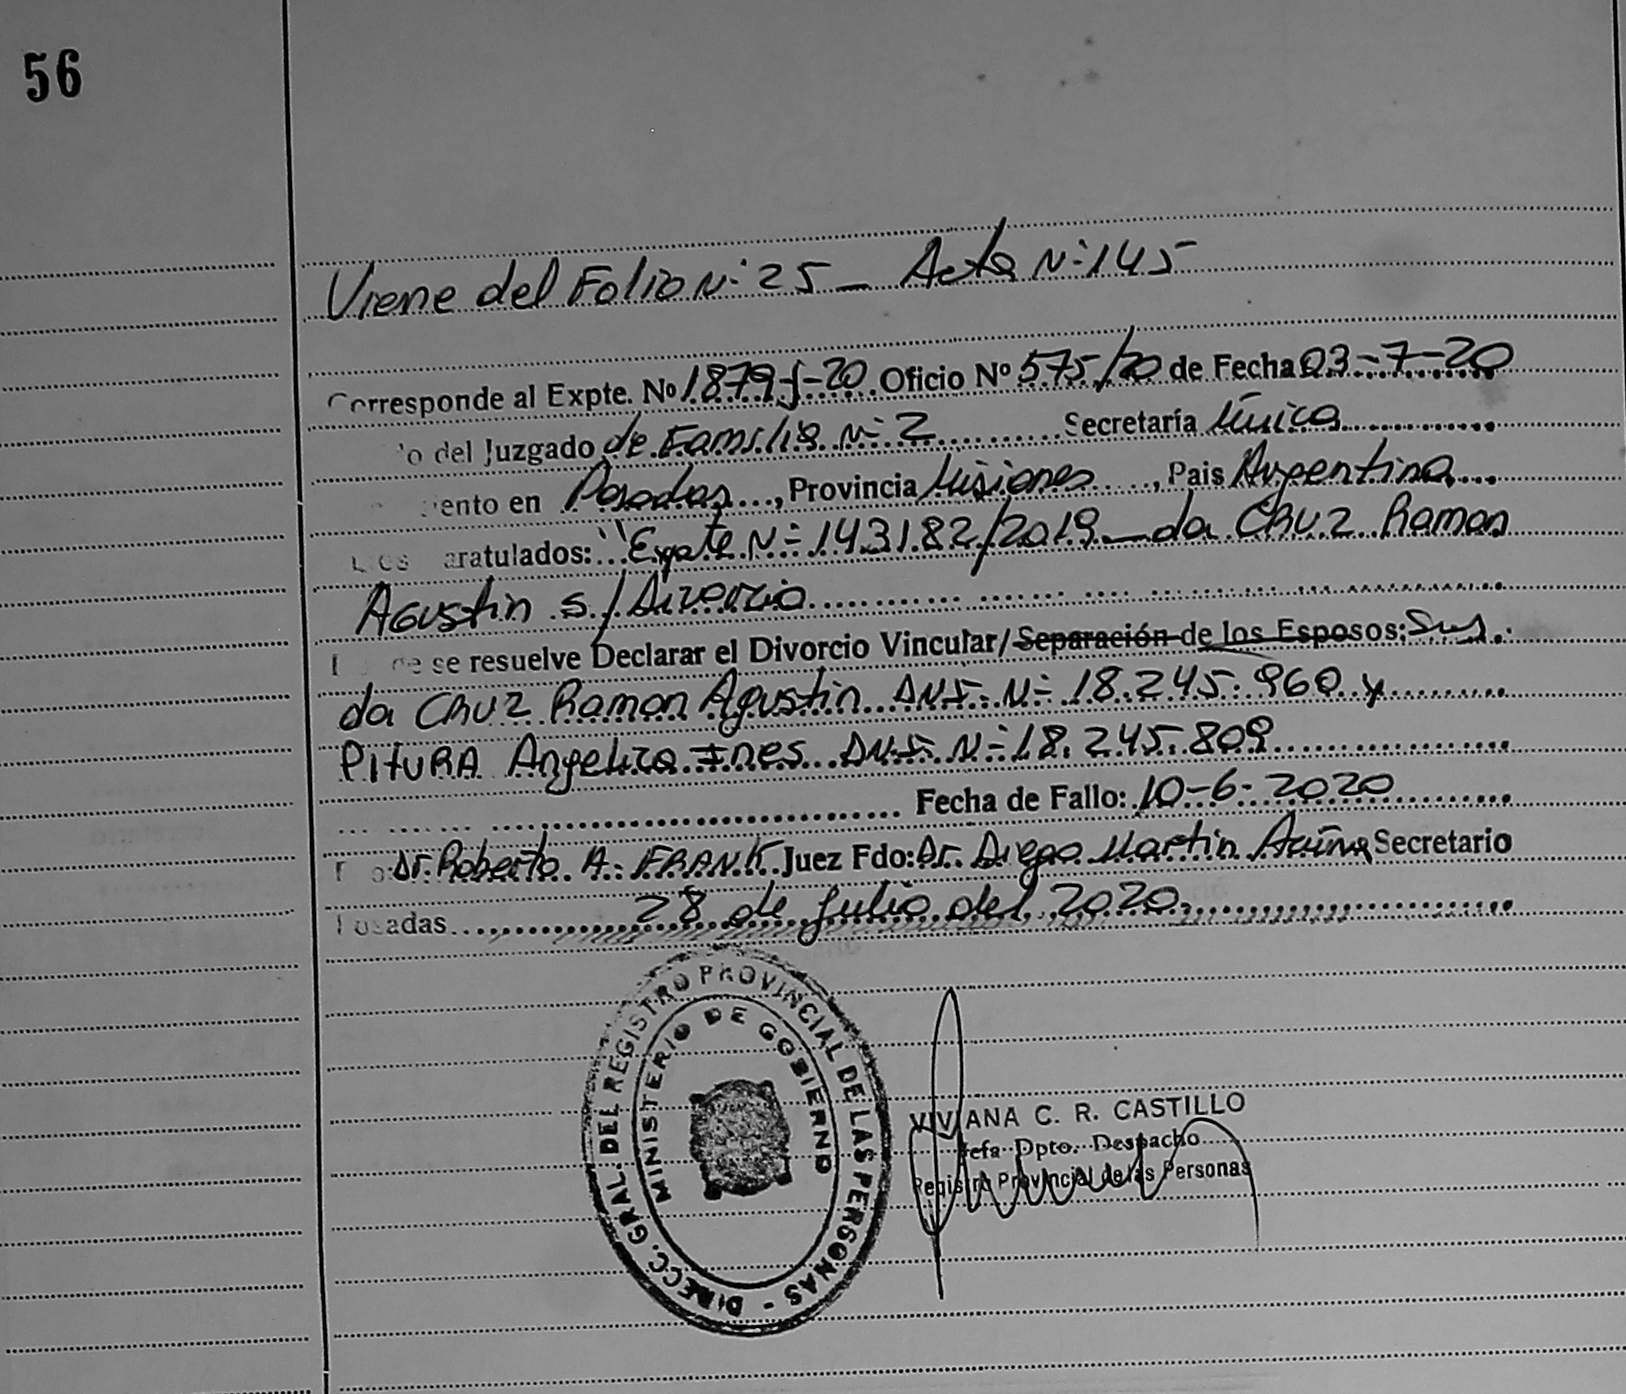 56
Viene del Folio N: 25 - Acta N: 145
Corresponde al Expte. Nº 1879-J-20 Oficio Nº 575/20 de Fecha 03-7-20
del Juzgado de Familia Nº 2 Secretaría Única
en Posadas, Provincia Misiones, Pais Argentina
"Expte Nº 143182/2019 - da CRUZ Ramon
Agustin s/ Divorcio
se resuelve Declarar el Divorcio Vincular/Separación de los Esposos: Sres.
da CRUZ Ramon Agustin DNI. Nº 18.245.960 y
PITURA Angelica Ines DNI Nº 18.245.809
Fecha de Fallo: 10-6-2020
Dr. Roberto A. FRANK Juez Fdo: Dr. Diego Martin Acuña Secretario
Posadas 28 de Julio del 2020.
DIRECC. GRAL. DEL REGISTRO PROVINCIAL DE LAS PERSONAS -
MINISTERIO DE GOBIERNO
VIVIANA C. R. CASTILLO
Jefa Dpto. Despacho
Registro Provincial de las Personas